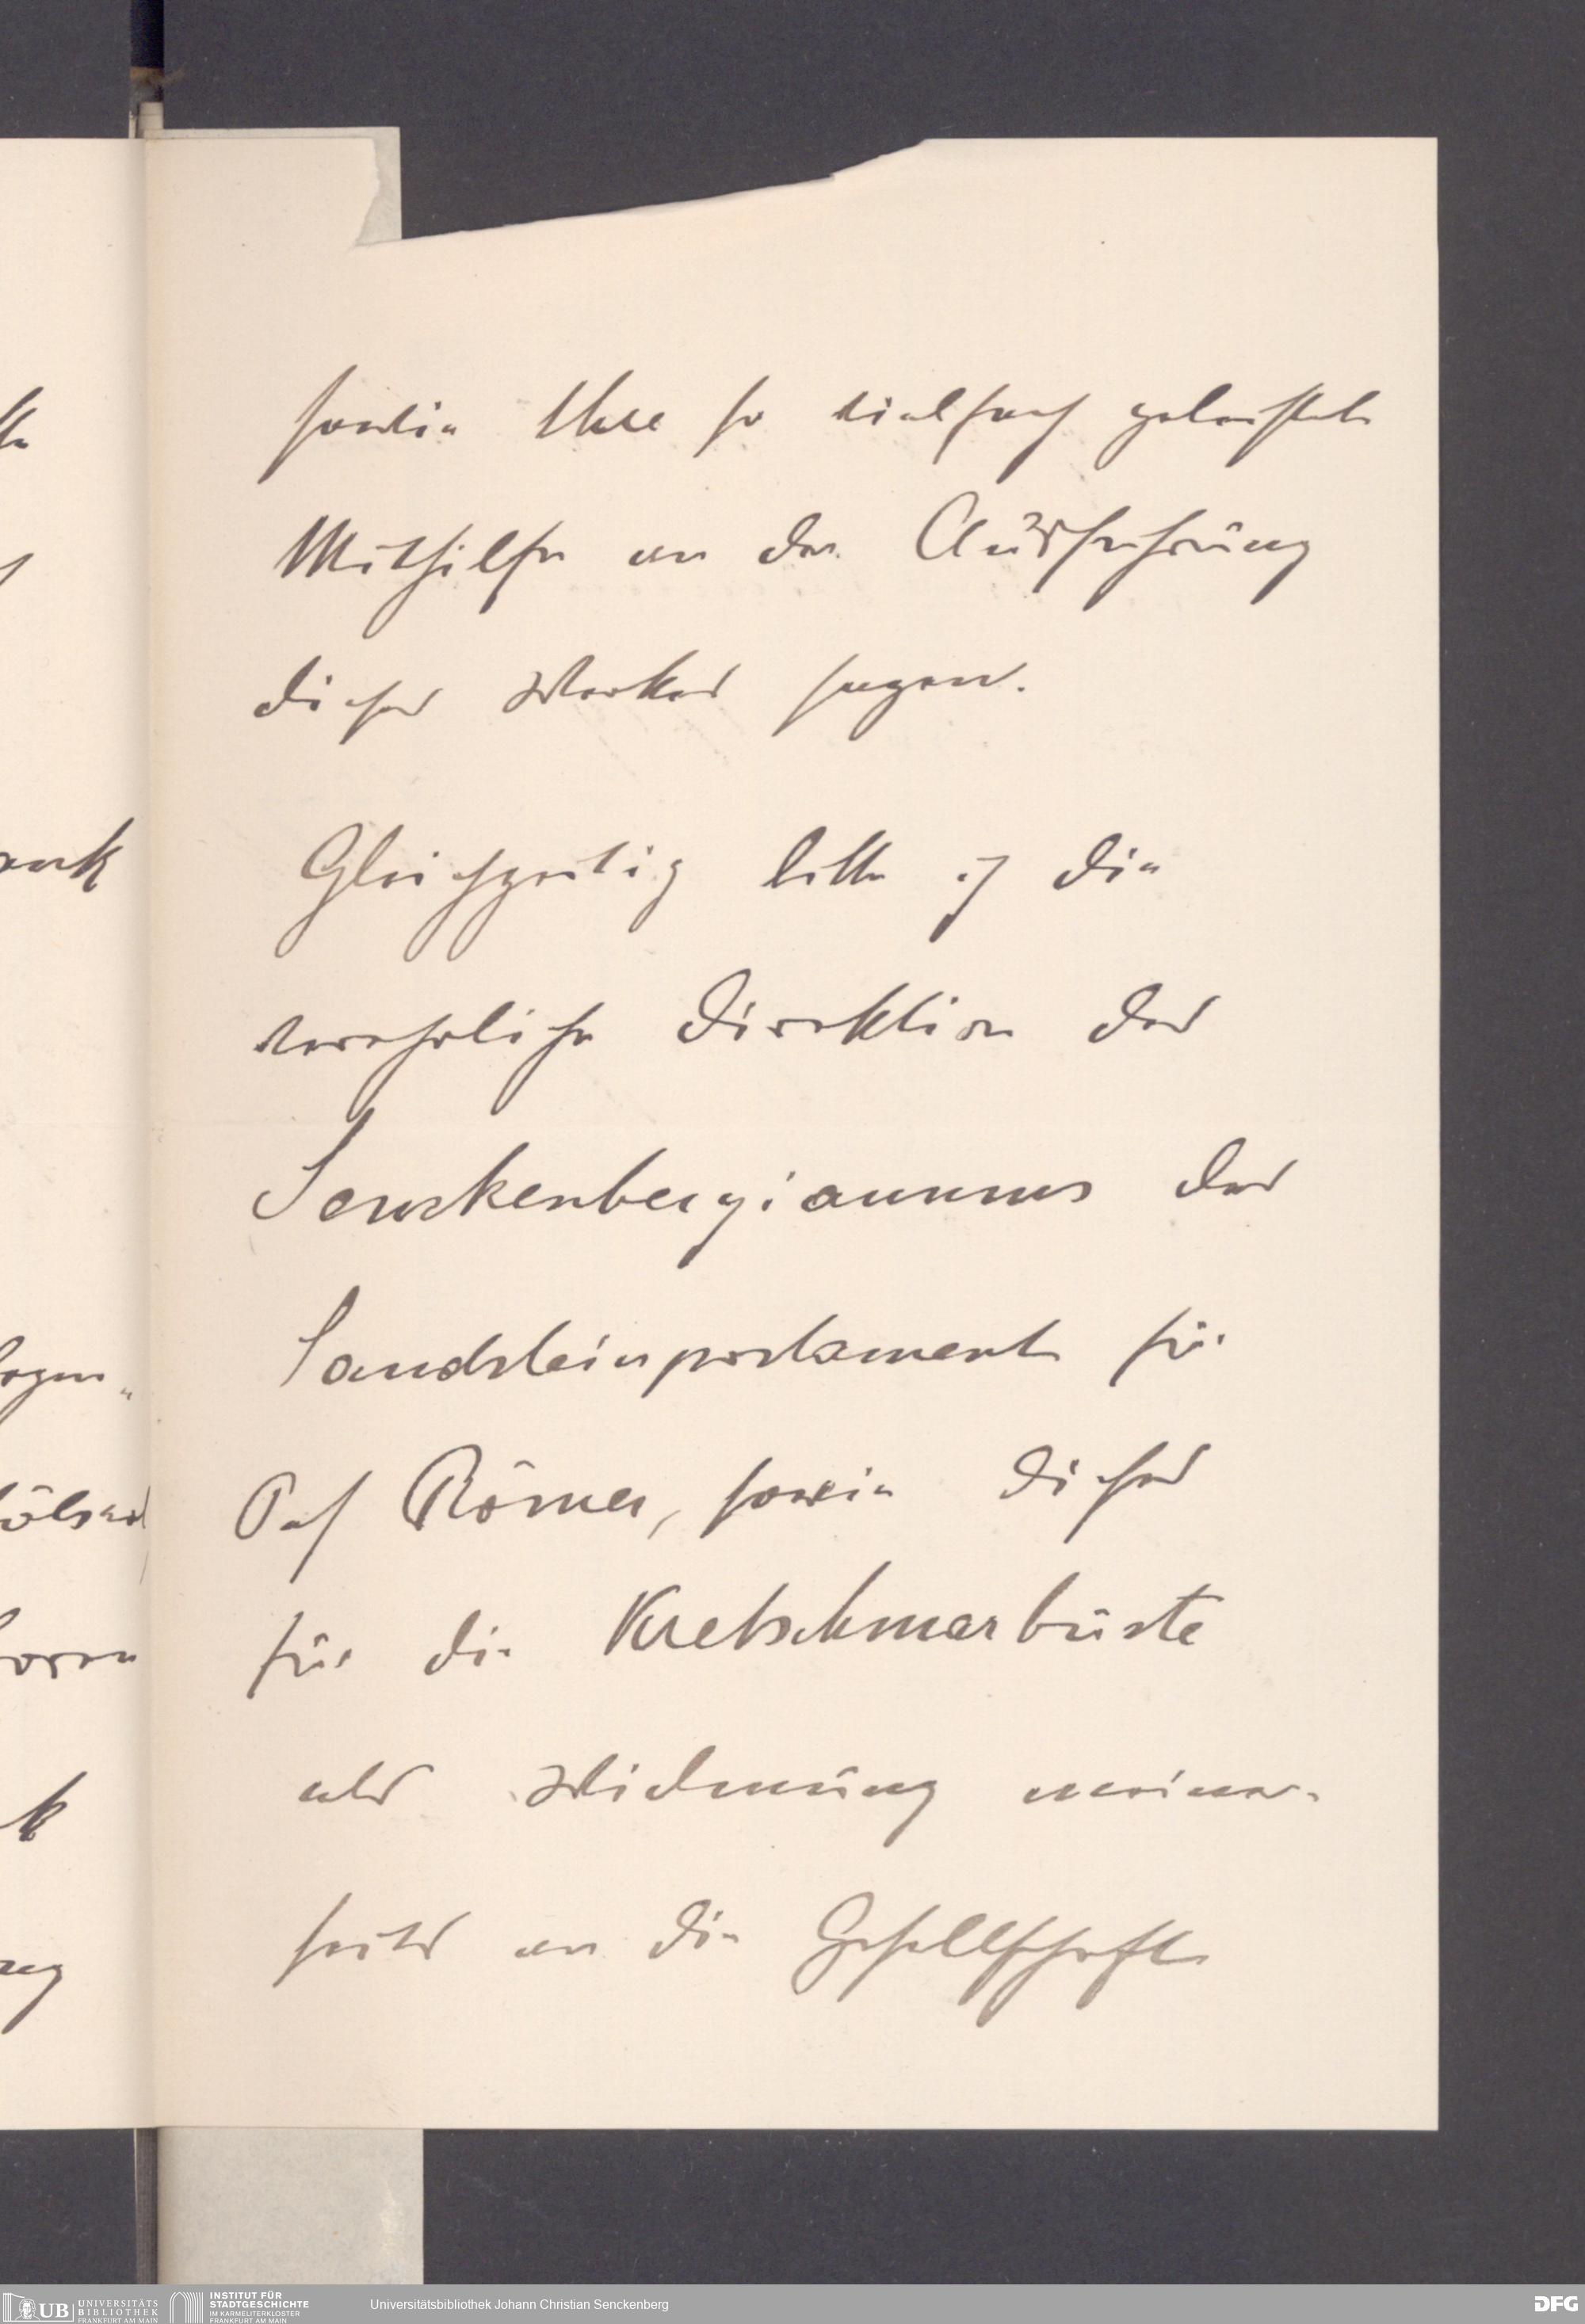 sowie Ihre so vielfach geleistete
Mithilfe an der Ausführung
dieses Werkes sagen.
Gleichzeitig bitte ich die
verehrliche Direktion des
Senckenbergianums das
Sandsteinpostament für
Römer, sowie dieses
für die Kretschmarbüste
als Widmung meiner-
seits an die Gesellschaft
ank
k
UB UNIVERSITÄTS
BIBLIOTHEK
FRANKFURT AM MAIN
INSTITUT FÜR
STADTGESCHICHTE
IM KARMELITERKLOSTER
FRANKFURT AM MAIN
Universitätsbibliothek Johann Christian Senckenberg
DFG